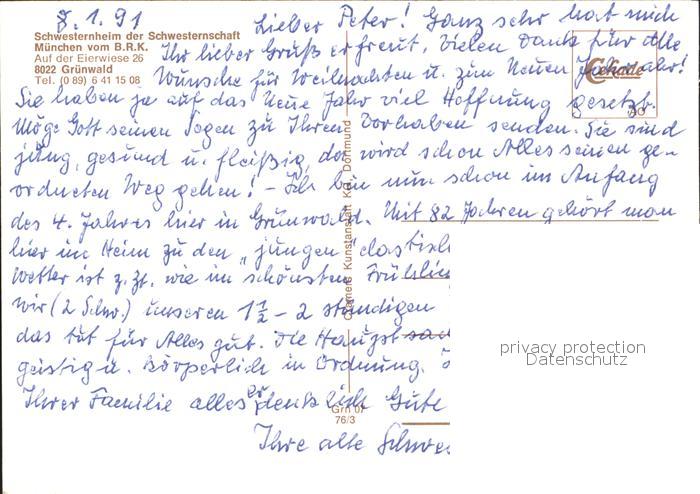 8.1.91
Schwesternheim der Schwesternschaft
München vom B.R.K.
Auf der Eierwiese 26
8022 Grünwald
Tel. (0 89) 6 41 15 08
Lieber Peter! Ganz sehr hat mich
Ihr lieber Gruß erfreut, Vielen Dank für Alle
Wünsche für Weihnachten u. zum Neuen Jahr!
Sie haben ja auf das Neue Jahr viel Hoffnung gesetzt.
Möge Gott seinen Segen zu Ihren Vorhaben senden. Sie sind
jung, gesund u. fleißig, da wird schon Alles seinen ge-
ordneten Weg gehen! - Ich bin nun schon im Anfang
des 4. Jahres hier in Grünwald. Mit 82 Jahren gehört man
hier im Heim zu den „jungen"
Wetter ist z. Zt. wie im schönsten Frühlin
wir (2 Schw.) unseren 1½ - 2 stündigen
das tut für Alles gut. Die Hauptsa
geistig u. körperlich in Ordnung.
Ihrer Familie alles erdenklich Gute
Ihre alte Schwe
Cramers Kunstanstalt KG, Dortmund
Cekade
Grn 07
76/3
privacy protection
Datenschutz